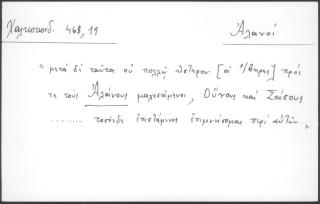 Χαλκοκονδ. 468, 19
Ἀλανοί
"μετὰ δὲ ταῦτα οὐ πολλῷ ὕστερον [οἱ Ἴβηρες] πρός
τε τοὺς Ἀλάνους μαχεσάμενοι, Οὔννους καὶ Σάσους
......... τοσόνδε ἐπιστάμενος ἐπιμνήσομαι περὶ αὐτῶν."